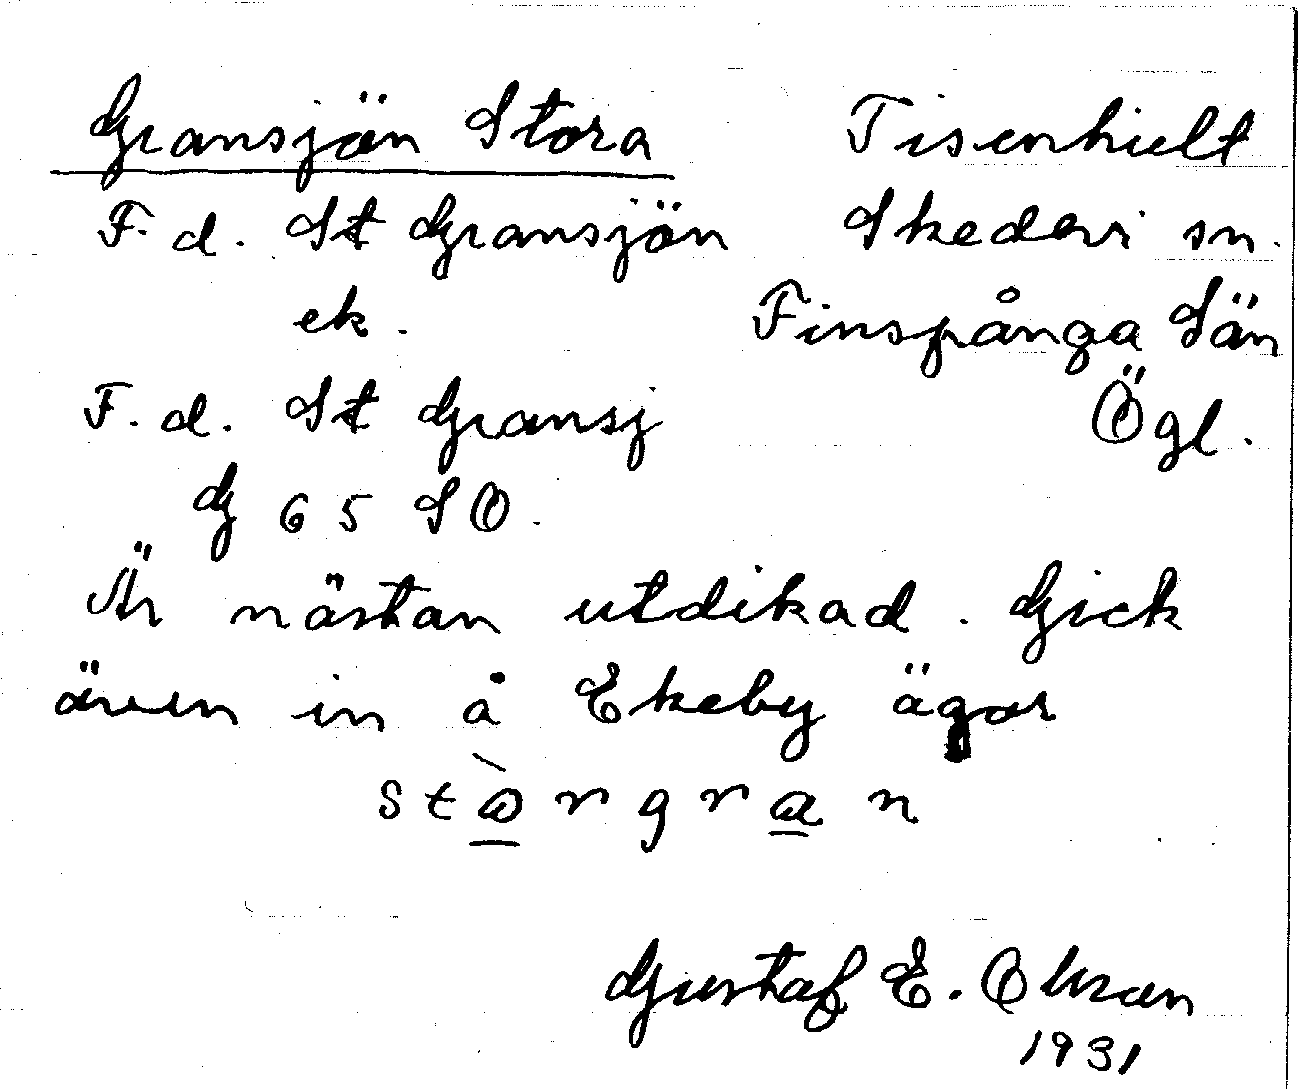 Gransjön Stora
F. d. St Gransjön
ek.
F. d. St Gransj
G 65 SO.
Tisenhult
Skedevi sn.
Finspånga län
Ögl.
Är nästan utdikad. Gick
även in å Ekeby ägor
stòrgran
Gustaf E. Olsson
1931